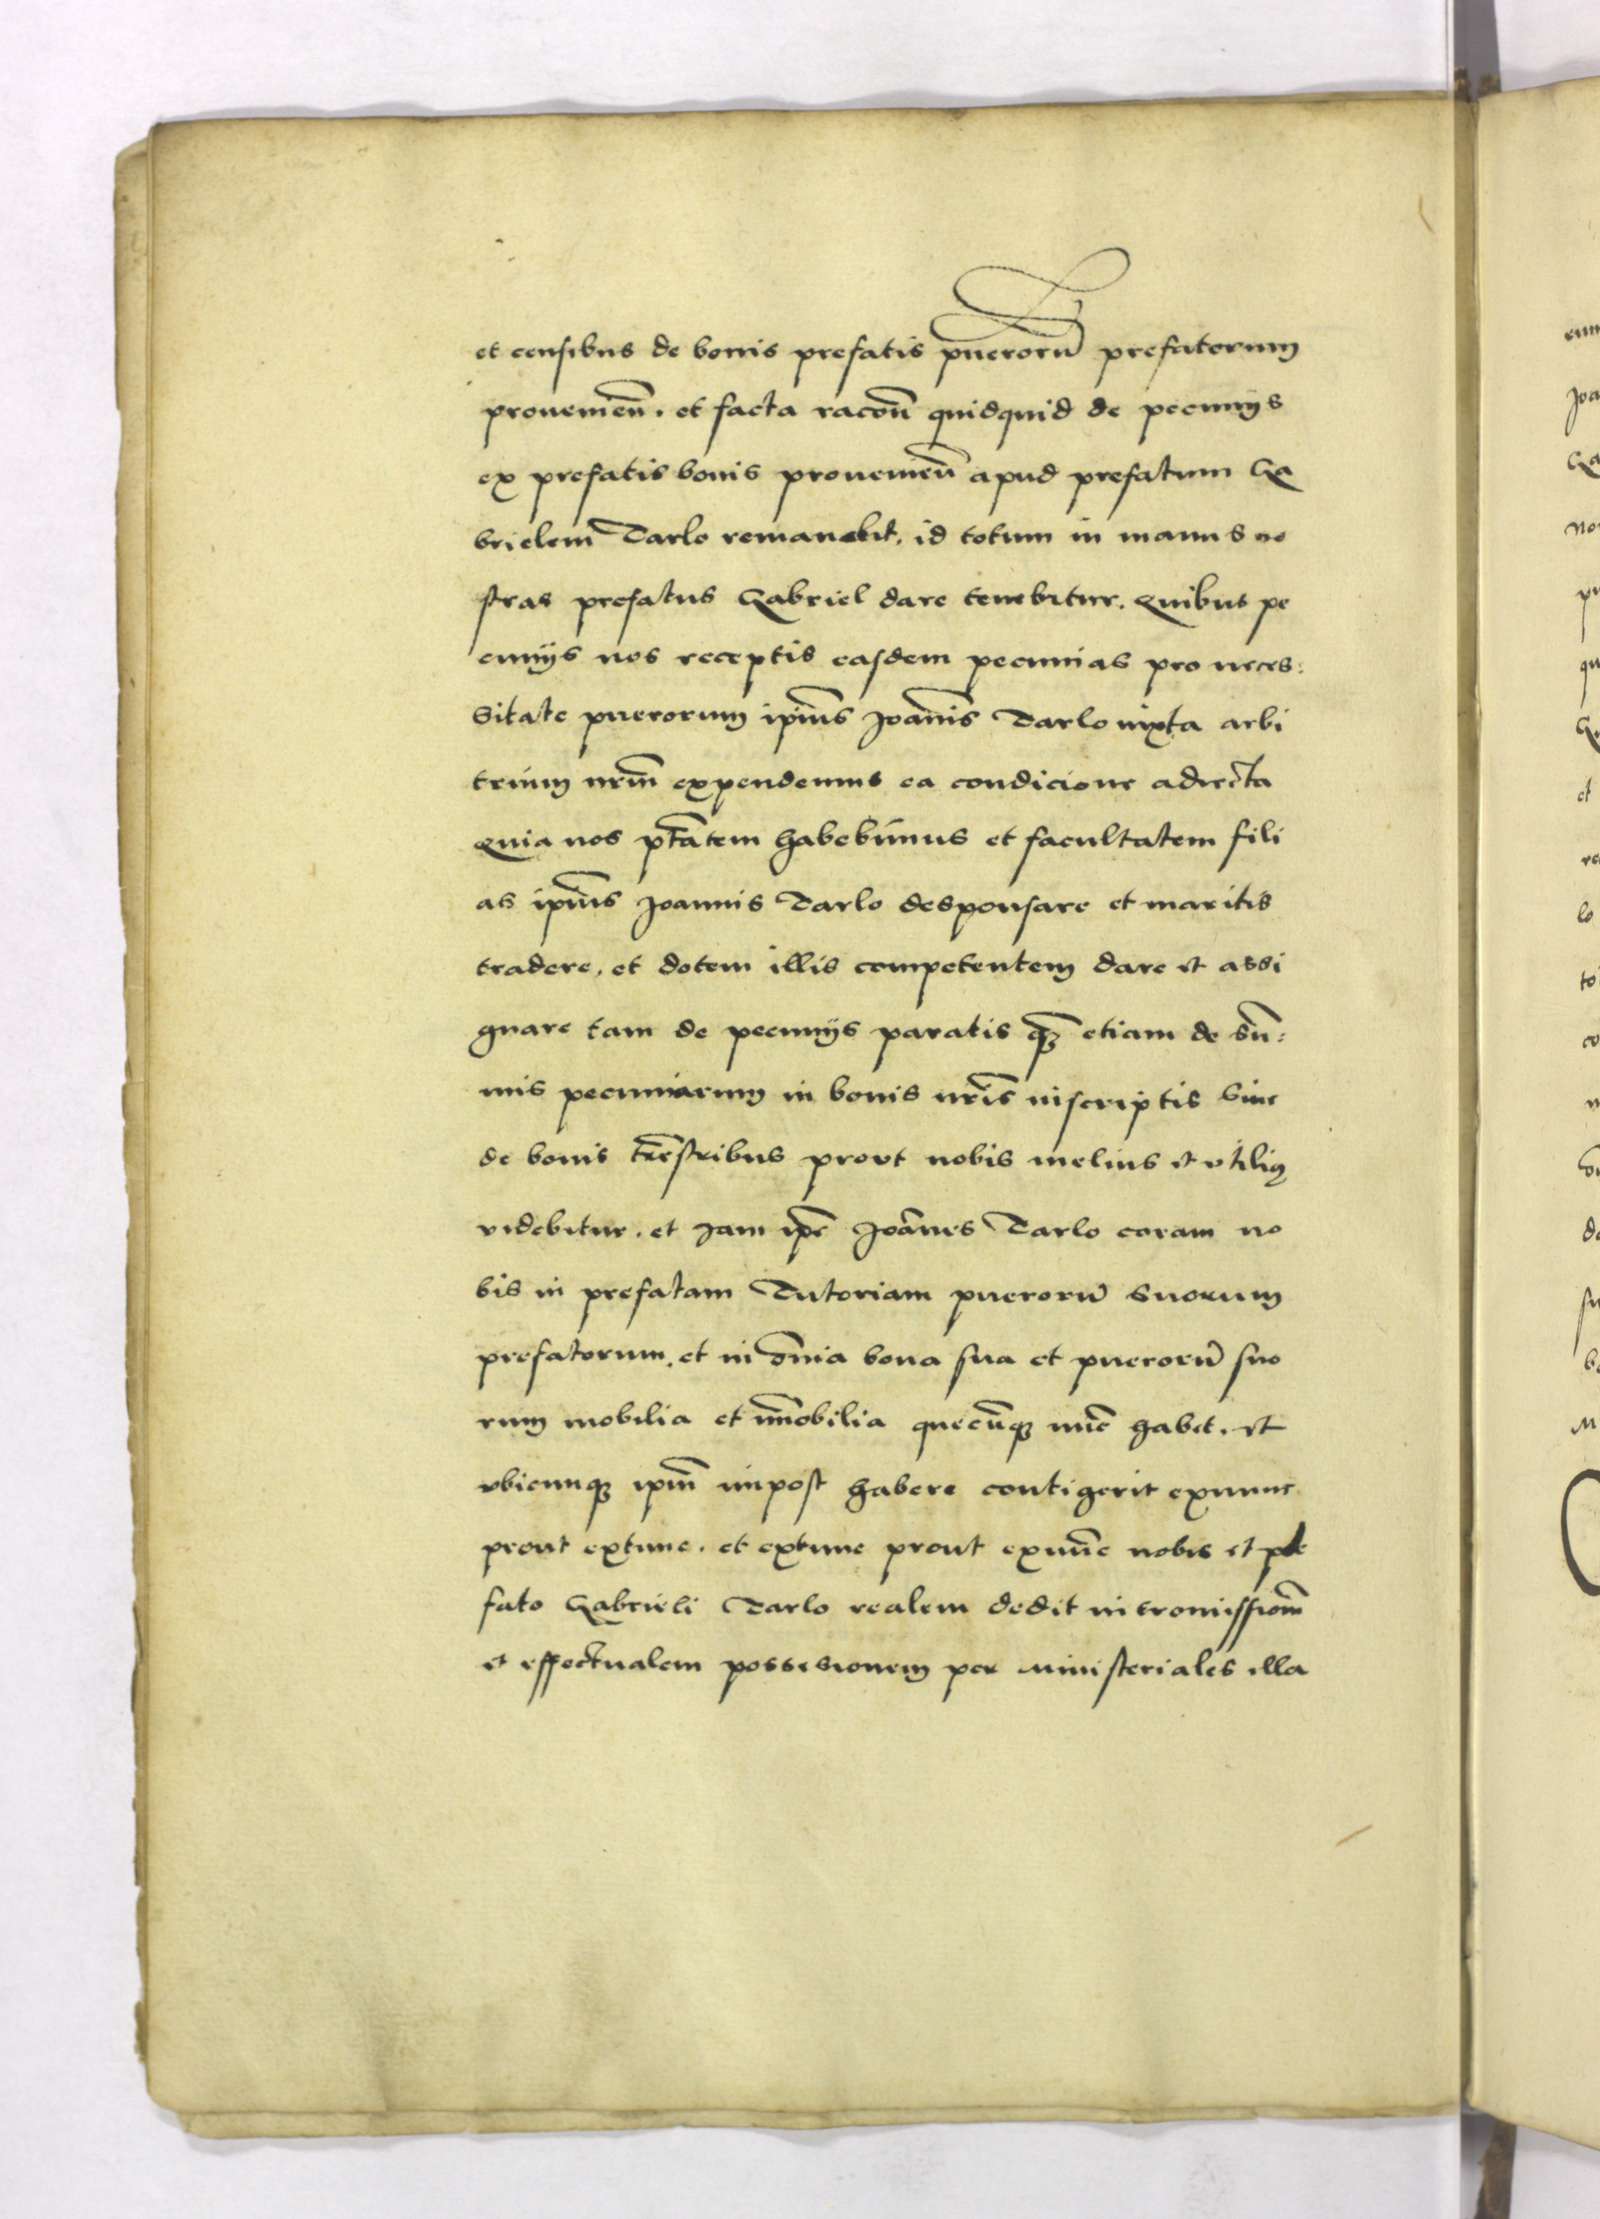 et censibus de bonis prefatis puerorū prefatorum
prouenieñ. et facta racoñ quidquid de pecunijs
ex prefatis bonis prouenieñ apud prefatum Ga
brielem Tarlo remanebit. id totum in manus no
stras prefatus Gabriel dare tenebitur. Quibus pe
cunijs nos receptis easdem pecunias pro neces:
sitate puerorum ip̄ius Joānis Tarlo iuxta arbi
trium nr̄m expendemus ea condicione adiecta
Quia nos ptātem habebimus et facultatem fili
as ip̄ius Joannis Tarlo desponsare et maritis
tradere. et dotem illis competentem dare et assi
gnare tam de pecunijs paratis qꝫ etiam de sū:
mis pecuniarum in bonis nr̄is inscriptis siue
de bonis tr̄estribus prout nobis melius et vtiliꝰ
videbitur. et Jam ip̄e Joānes Tarlo coram no
bis in prefatam Tutoriam puerorū suorum
prefatorum. et in om̄ia bona sua et puerorū suo
rum mobilia et im̄obilia quecūqꝫ nūc habet. et
vbicunqꝫ ip̄m inpost habere contigerit exnunc
prout extunc. et extunc prout exnūc nobis et pre
fato Gabrieli Tarlo realem dedit intromissiom̄
et effectualem possesionem per ministeriales illa